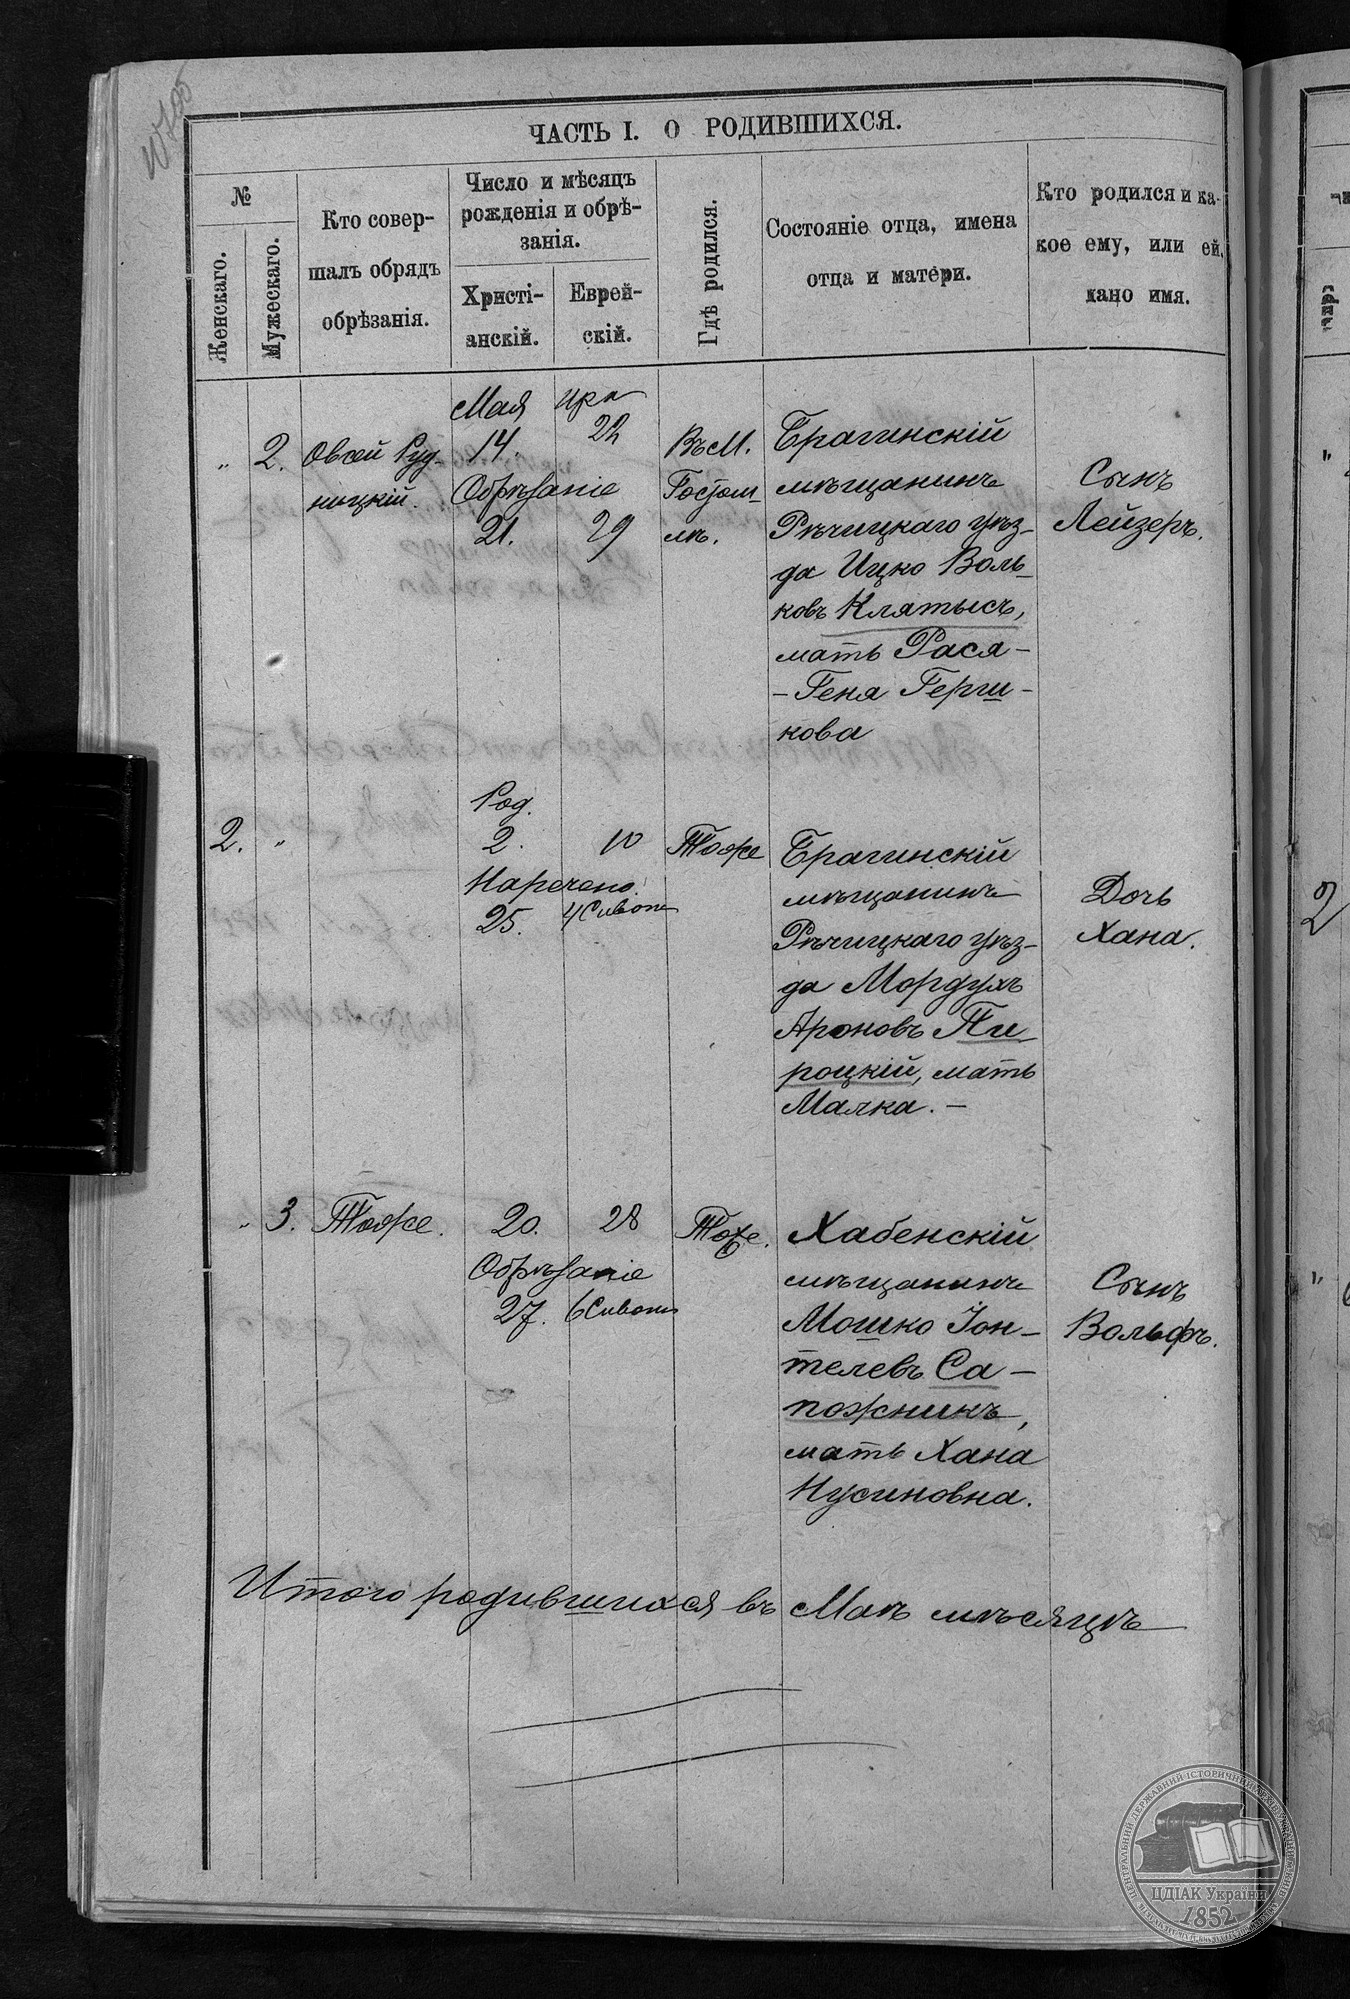 ЧАСТЬ I. О РОДИВШИХСЯ.
№
Женскаго.
Мужескаго.
Кто совер-
шалъ обрядъ
обрѣзанія.
Число и мѣсяцъ
рожденія и обрѣ-
занія.
Христі-
анскій.
Еврей-
скій.
Гдѣ родился.
Состояніе отца, имена
отца и матери.
Кто родился и ка-
кое ему, или ей,
дано имя.
„ 2.
Овсей Руд-
ницкій.
Мая
14.
Обрѣзаніе
21.
Ира
22
29
Въ М.
Гостом-
лѣ.
Брагинскій
мѣщанинъ
Рѣчицкаго уѣз-
да Ицко Воль-
ковъ Клятысъ,
мать Рася-
-Геня Герш-
кова
Сынъ
Лейзеръ.
2. „
Род.
2.
Наречено.
25.
10
4 Сивона
Тоже
Брагинскій
мѣщанинъ
Рѣчицкаго уѣз-
да Мордухъ
Ароновъ Пи-
роцкій, мать
Малка. -
Дочь
Хана.
„ 3.
Тоже.
20.
Обрѣзаніе
27.
28
6 Сивона
Тоже.
Хабенскій
мѣщанинъ
Мошко Іон-
телевъ Са-
пожникъ,
мать Хана
Нусиновна.
Сынъ
Вольфъ.
Итого родившихся въ Маѣ мѣсяцѣ
2
„
ЦЕНТРАЛЬНИЙ ДЕРЖАВНИЙ ІСТОРИЧНИЙ АРХІВ УКРАЇНИ
ЦДІАК України
1852